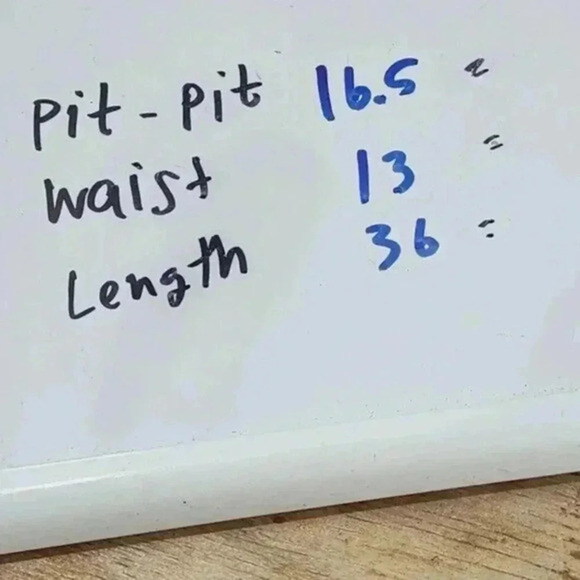 Pit - Pit 16.5 "
Waist 13 "
Length 36 "